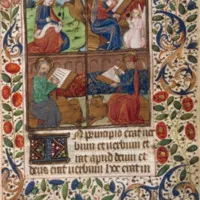 In principio erat ver
bum et verbum e
rat apud deum et
deus erat verbum hoc erat in